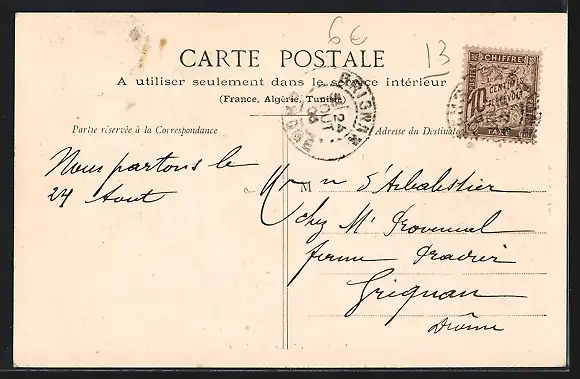 6€
13
CARTE POSTALE
A utiliser seulement dans le service intérieur
(France, Algérie, Tunisie)
Partie réservée à la Correspondance
Adresse du Destinataire
CHIFFRE
10
CENTIMES
À PERCEVOIR
TAXE
GRIGNAN
24
AOUT
06
DROME
Nous partons le
24 Aout
M
d'Arbalestier
chez Mr Provensal
ferme Pradier
Grignan
Drôme